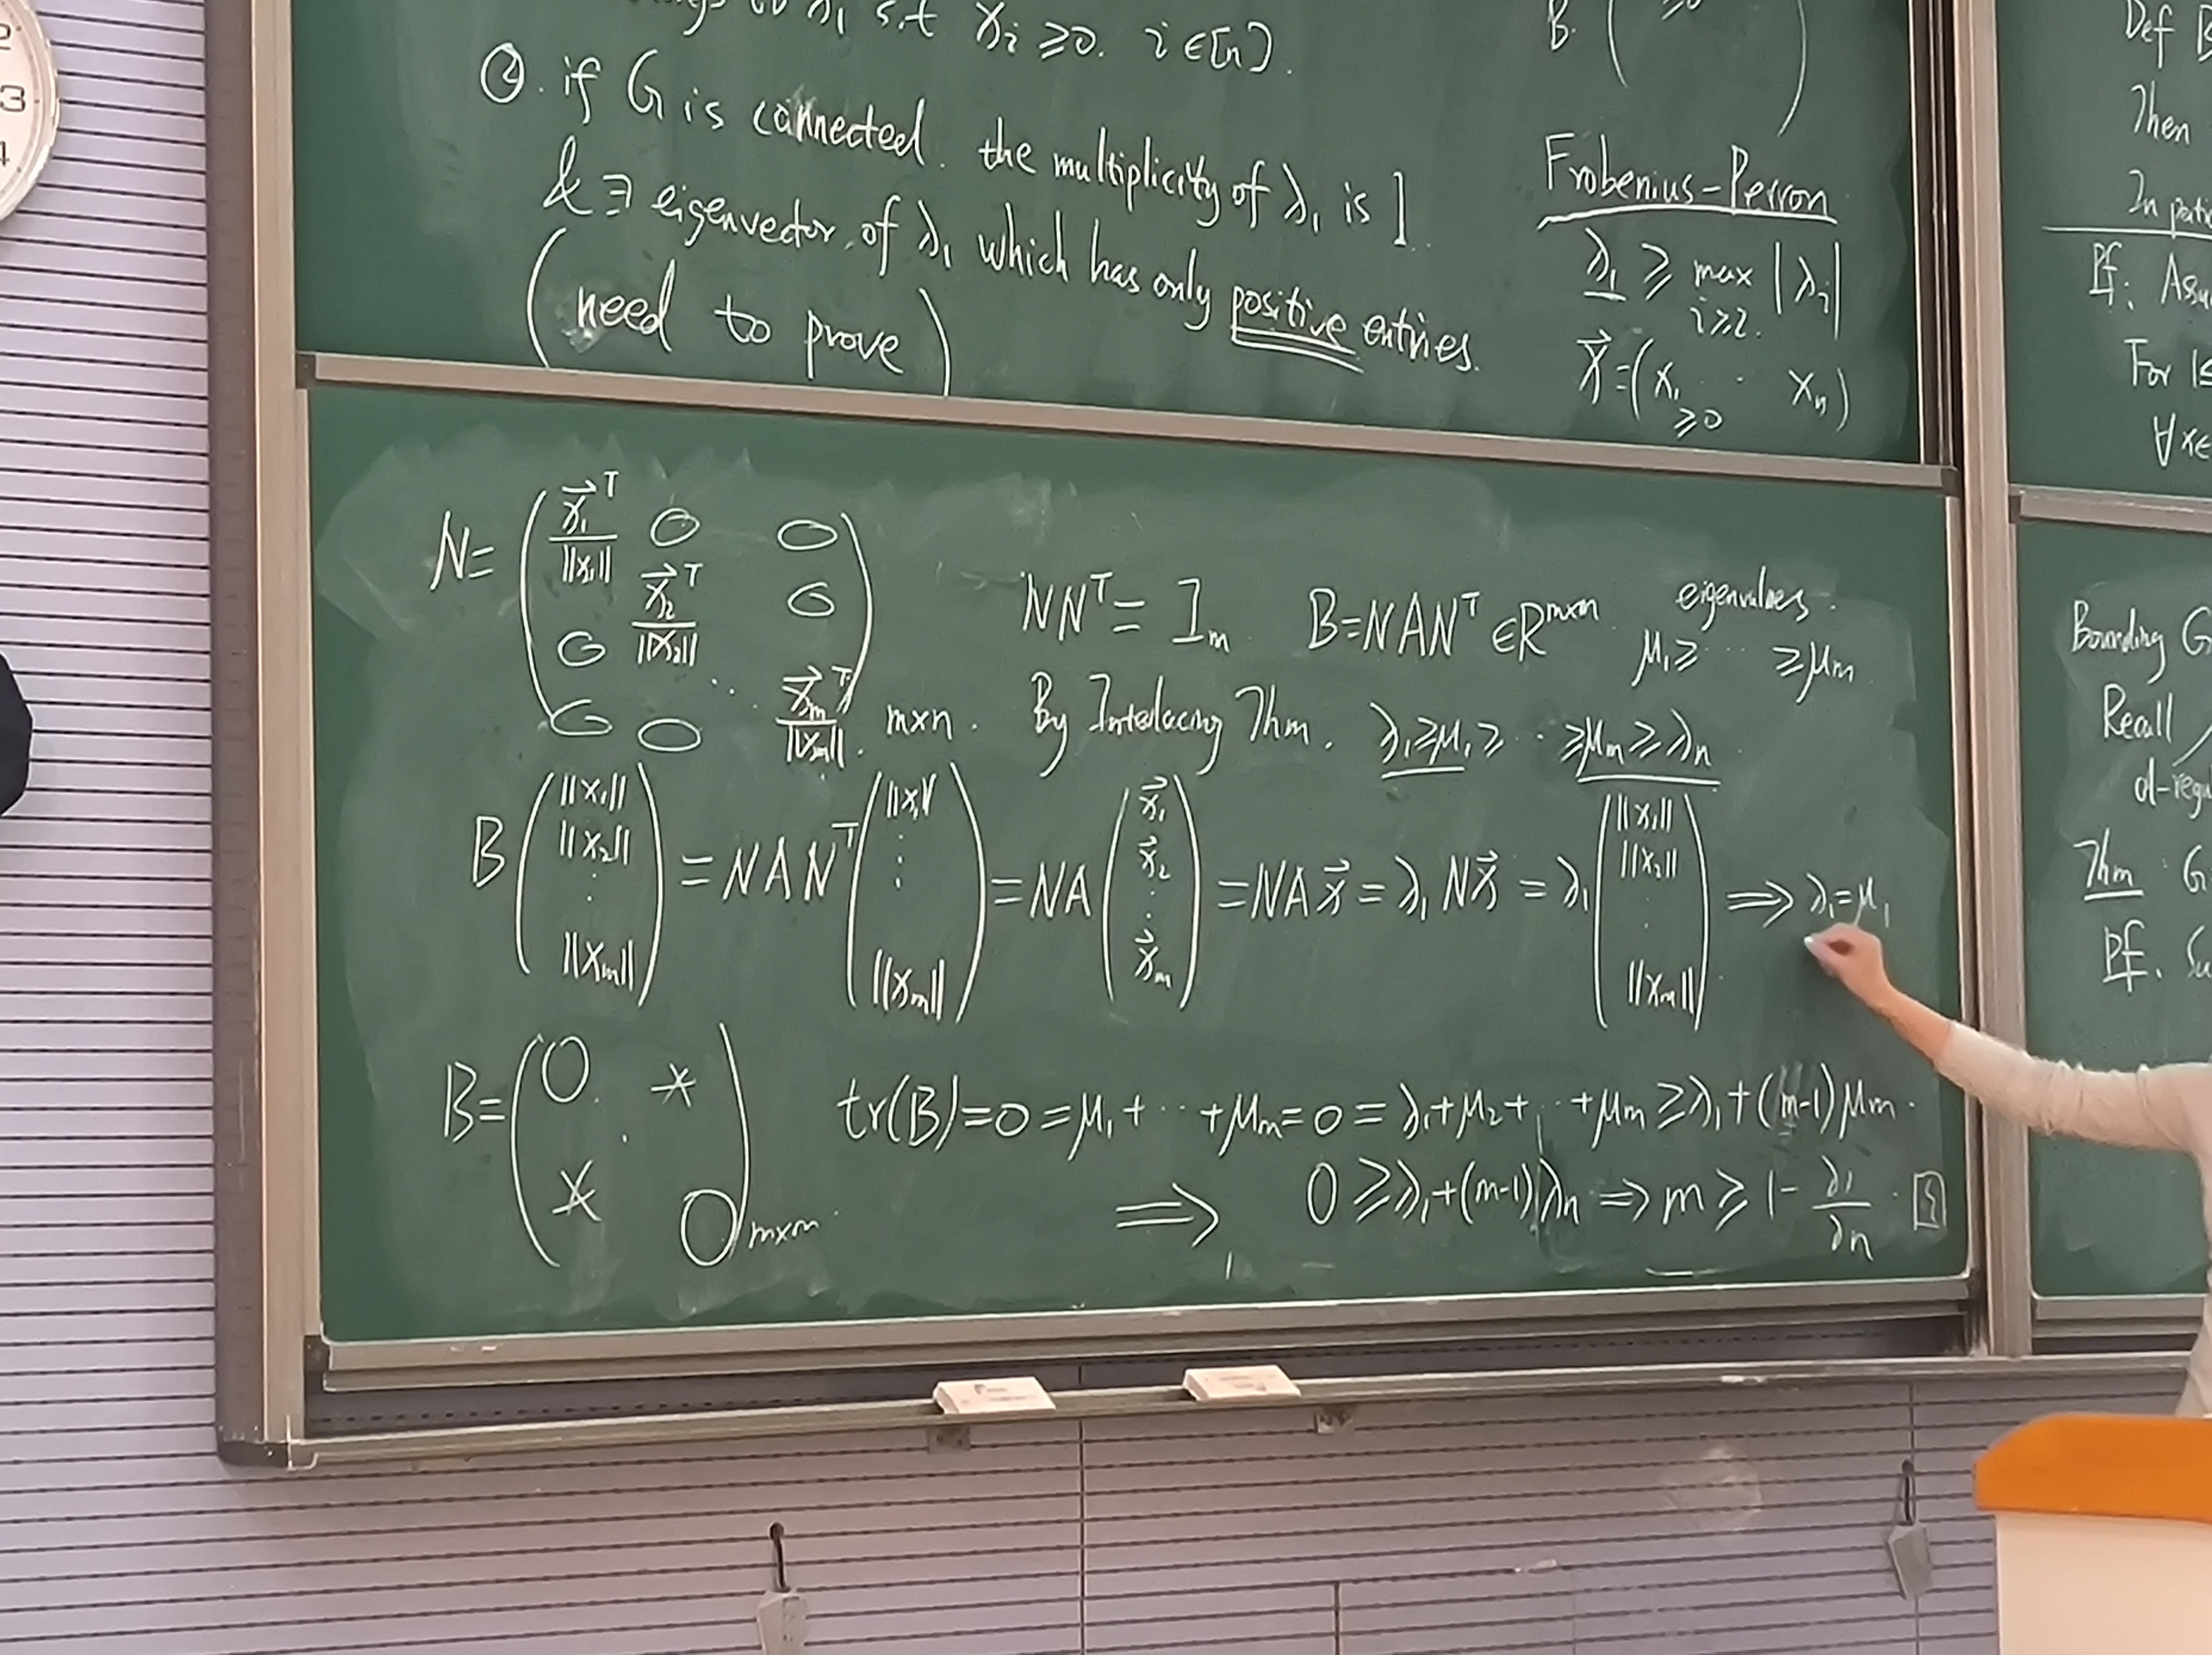 2
3
4
λ₁ s.t xᵢ ≥0. i∈[n].
②. if G is connected. the multiplicity of λ₁ is 1.
& ∃ eigenvector of λ₁ which has only positive entries.
(need to prove)
B. ( ≥0 )
Frobenius-Perron
λ₁ ≥ max_{i≥2.} |λᵢ|
x⃗=(x₁ ·· xₙ)
≥0
N= ( x⃗₁ᵀ/||x₁|| 0 0
0 x⃗₂ᵀ/||x₂|| 0
0 0 ·· x⃗ₘᵀ/||xₘ|| ) m×n.
NNᵀ = Iₘ B=NANᵀ ∈ℝ^{m×m} eigenvalues. μ₁≥ ··· ≥μₘ
By Interlacing Thm. λ₁≥μ₁≥ ··· ≥μₘ≥λₙ
B ( ||x₁|| ||x₂|| ⋮ ||xₘ|| ) = NANᵀ ( ||x₁|| ⋮ ||xₘ|| ) = NA ( x⃗₁ x⃗₂ ⋮ x⃗ₘ ) = NA x⃗ = λ₁ N x⃗ = λ₁ ( ||x₁|| ||x₂|| ⋮ ||xₘ|| ) ⟹ λ₁=μ₁
B= ( 0 * ⋱ * 0 )_{m×m}
tr(B)=0=μ₁+ ··· +μₘ=0=λ₁+μ₂+ ··· +μₘ ≥λ₁+(m-1)μₘ.
⟹ 0 ≥λ₁+(m-1)λₙ ⟹ m ≥ 1- λ₁/λₙ.
Def B
Then
In
Pf: Assu
For 1≤
∀x∈
Bounding G
Recall
d-regu
Thm G
Pf. Su